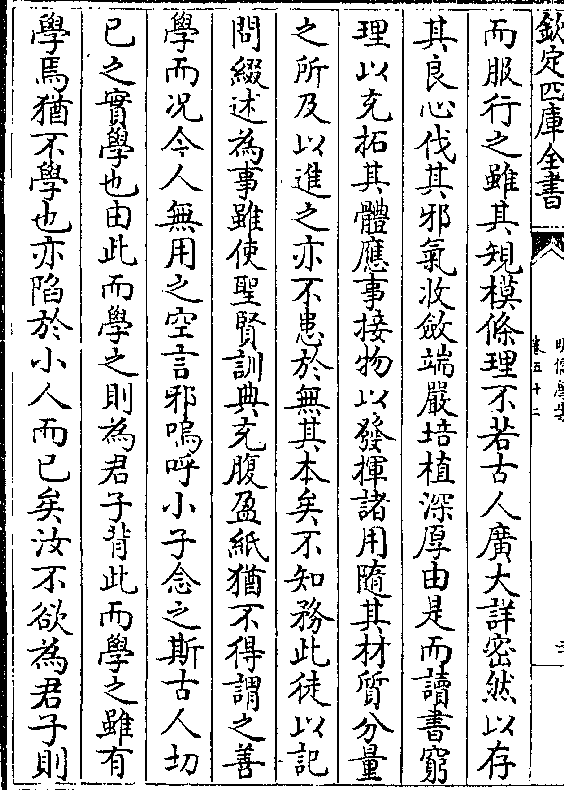 欽定四庫全書
明儒學案
卷五十二
而服行之雖其規模條理不若古人廣大詳密然以存
其良心伐其邪氣收斂端嚴培植深厚由是而讀書窮
理以充拓其體應事接物以發揮諸用隨其材質分量
之所及以進之亦不患於無其本矣不知務此徒以記
問綴述為事雖使聖賢訓典充腹盈紙猶不得謂之善
學而况今人無用之空言邪嗚呼小子念之斯古人切
已之實學也由此而學之則為君子背此而學之雖有
學焉猶不學也亦陷於小人而已矣汝不欲為君子則